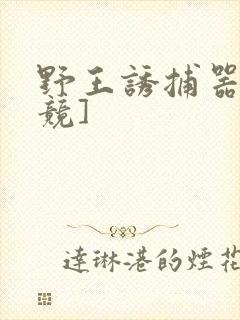 野王誘捕器
競]
達琳港的煙花